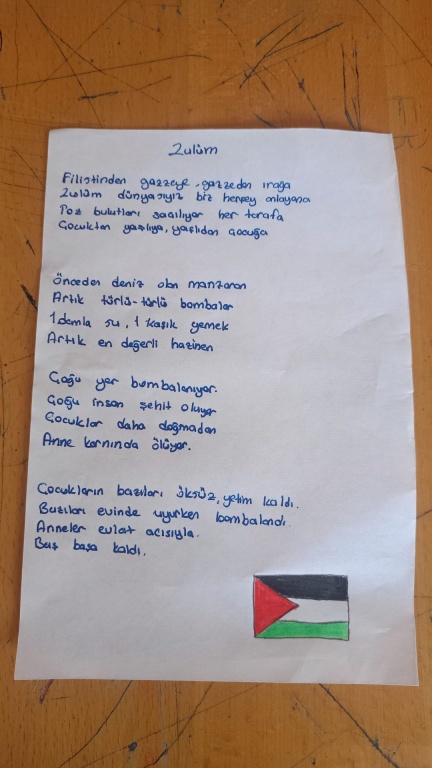 Zulüm
Filistinden gazzeye, gazzeden ırağa
Zulüm dünyasıyız biz herşey anlayana
Poz bulutları saçılıyor her tarafa
Çocuktan yaşlıya, yaşlıdan çocuğa
Önceden deniz olan manzaran
Artık türlü-türlü bombalar
1 damla su, 1 kaşık yemek
Artık en değerli hazinen
Çoğu yer bombalanıyor.
Çoğu insan şehit oluyor
Çocuklar daha doğmadan
Anne karnında ölüyor.
Çocukların bazıları öksüz, yetim kaldı.
Bazıları evinde uyurken bombalandı.
Anneler evlat acısıyla.
Baş başa kaldı.